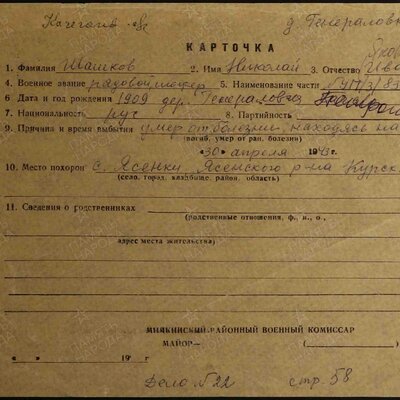 д. Генераловк
КАРТОЧКА
1. Фамилия Машков 2. Имя Николай 3. Отчество Ива
4. Военное звание рядовой шофер 5. Наименование части
6. Дата и год рождения 1909 дер. Генераловка
7. Национальность рус 8. Партийность
9. Причина и время выбытия умер от болезни, находясь на
(погиб, умер от ран, болезни)
"30" апреля 1943г.
10. Место похорон с. Ясенки Ясенского р-на Курск
(село, город, кладбище, район, область)
11. Сведения о родственниках
(родственные отношения, ф., и., о.,
адрес места жительства)
РАЙОННЫЙ ВОЕННЫЙ КОМИССАР
МАЙОР—
« » 19 г
Дело №22 стр. 58